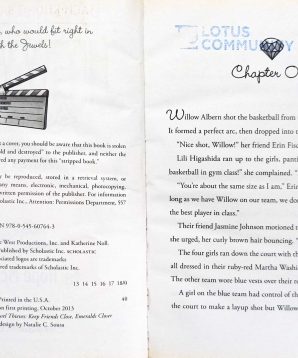 , who would fit right in
h the Jewels!
a cover, you should be aware that this book is stolen
old and destroyed" to the publisher, and neither the
ed any payment for this "stripped book."
y be reproduced, stored in a retrieval system, or
any means, electronic, mechanical, photocopying,
written permission of the publisher. For information
olastic Inc., Attention: Permissions Department, 557
N 978-0-545-60764-3
e West Productions, Inc. and Katherine Noll.
lastic Inc. SCHOLASTIC
ociated logos are trademarks
red trademarks of Scholastic Inc.
13 14 15 16 17 18/0
Printed in the U.S.A. 40
st printing, October 2013
earl Thieves: Keep Friends Close, Emeralds Closer
design by Natalie C. Sousa
LOTUS
COMMUNITY
Chapter O
Willow Albern shot the basketball from
It formed a perfect arc, then dropped into t
"Nice shot, Willow!" her friend Erin Fisc
Lili Higashida ran up to the girls, panti
basketball in gym class!" she complained. "
"You're about the same size as I am," Erin
long as we have Willow on our team, we do
the best player in class."
Their friend Jasmine Johnson motioned t
she urged, her curly brown hair bouncing. "
The four girls ran down the court with th
all dressed in their ruby-red Martha Washi
The other team wore blue vests over their re
A girl on the blue team had control of th
the court to make a layup shot but Willow